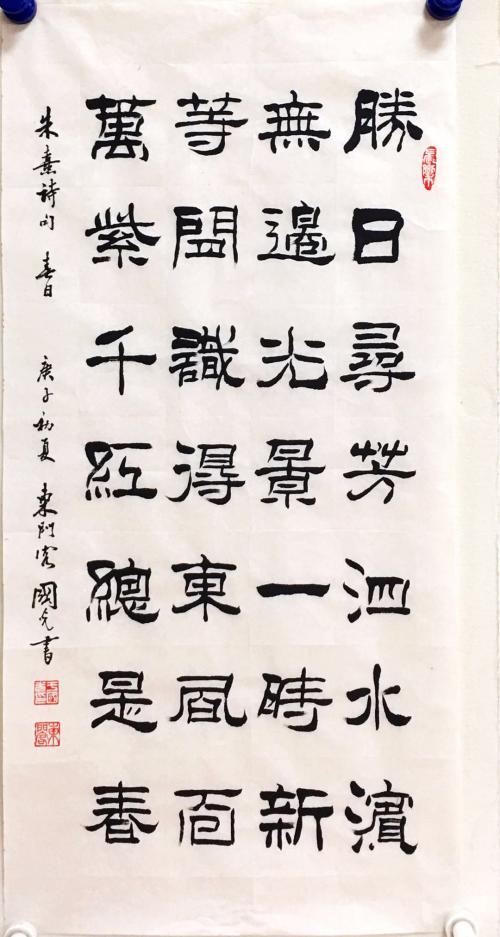 勝日尋芳泗水濱
無邊光景一時新
等閒識得東風面
萬紫千紅總是春
朱熹詩句 春日 庚子初夏 東門客 國光書